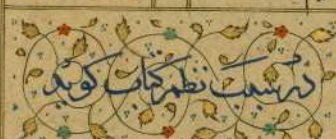 در سبب نظم کتاب کوید